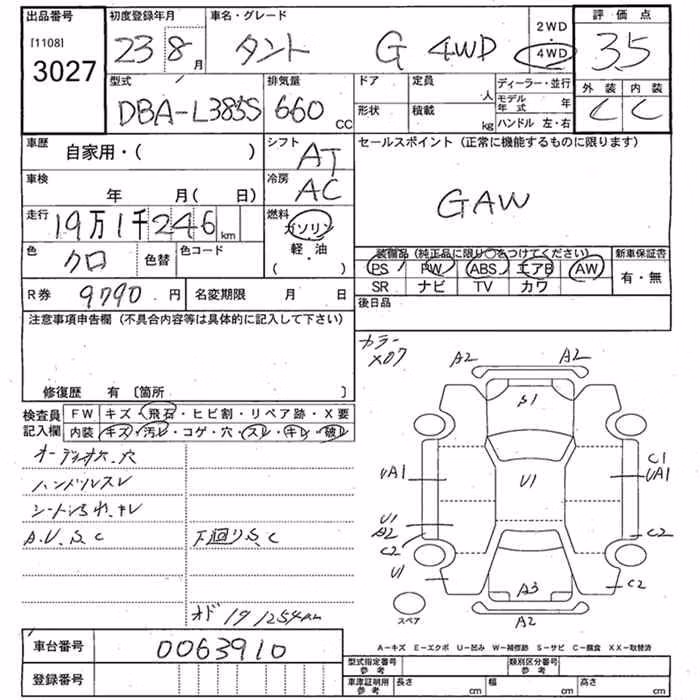 出品番号 初度登録年月 車名・グレード 2WD 評価点
[1108] 23 8月 タント G 4WD 4WD 3.5
3027 型式 排気量 ドア 定員 人 ディーラー・並行 外装 内装
DBA-L385S 660 CC 形状 積載 kg モデル年式 年 C C
ハンドル 左・右
車歴 自家用・( ) シフト AT セールスポイント (正常に機能するものに限ります)
車検 年 月( 日) 冷房 AC GAW
走行 19万1千246 km 燃料 ガソリン
色 クロ 色替 色コード 軽・油 ( ・ ) 装備品(純正品に限り○をつけてください) 新車保証書
PS PW ABS エアB AW 有・無
R券 9790円 名変期限 月 日 SR ナビ TV カワ
注意事項申告欄 (不具合内容等は具体的に記入して下さい) 後日品
カラー
X07
A2 A2
修復歴 有 〔箇所 〕 S1
検査員 FW キズ・飛石・ヒビ割・リペア跡・X要
記入欄 内装 キズ・汚レ・コゲ・穴・スレ・キレ・破レ
オーディオス.穴 C1
ハンドルスレ UA1 U1 UA1
シートシワれ、キレ U1
A.U.S.C 下廻りS.C A2 C2
C2
U1 C2
A3
オド 191254km スペア A2
車台番号 0063910 A－キズ E－エクボ U－凹み W－補修跡 S－サビ C－腐食 XX－取替済
型式指定番号 参考 類別区分番号 参考
登録番号 車庫証明用 参考 長さ cm 幅 cm 高さ cm